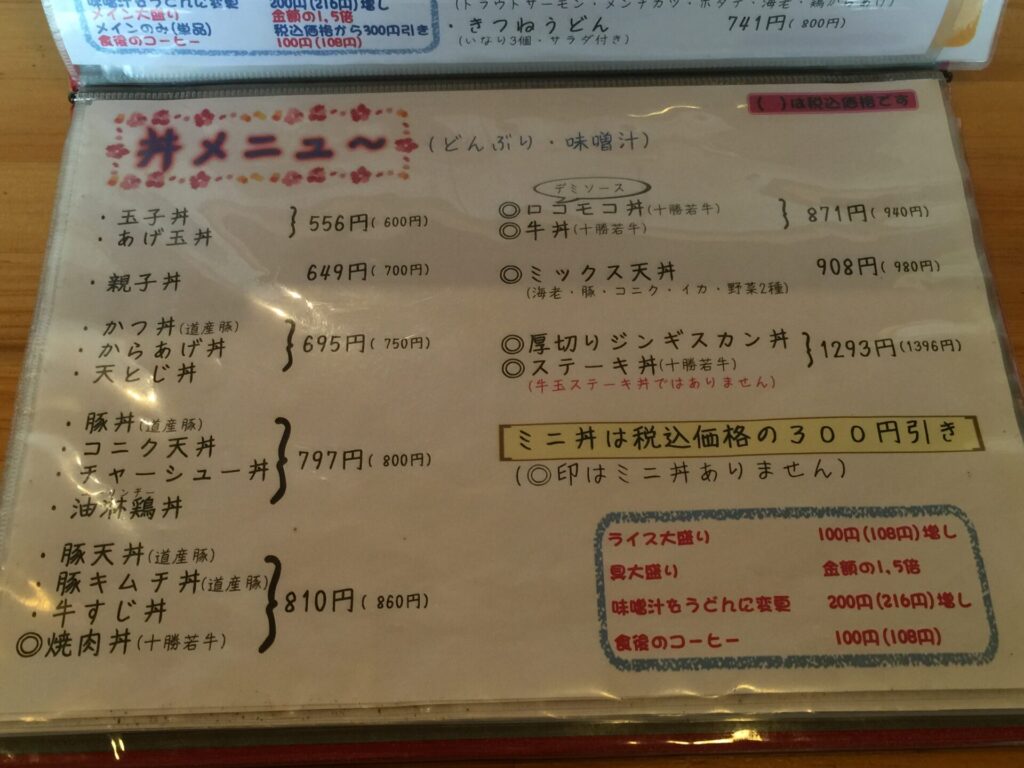 味噌汁をうどんに変更 200円(216円)増し
メイン大盛り 金額の1.5倍
メインのみ(単品) 税込価格から300円引き
食後のコーヒー 100円(108円)
・きつねうどん 741円(800円)
(いなり3個・サラダ付き)
( )は税込価格です
丼メニュ～(どんぶり・味噌汁)
・玉子丼
・あげ玉丼
556円(600円)
・親子丼 649円(700円)
・かつ丼(道産豚)
・からあげ丼
・天とじ丼
695円(750円)
・豚丼(道産豚)
・コニク天丼
・チャーシュー丼
・油淋鶏丼
797円(800円)
・豚天丼(道産豚)
・豚キムチ丼(道産豚)
・牛すじ丼
◎焼肉丼(十勝若牛)
810円(860円)
デミソース
◎ロコモコ丼(十勝若牛)
◎牛丼(十勝若牛)
871円(940円)
◎ミックス天丼 908円(980円)
(海老・豚・コニク・イカ・野菜2種)
◎厚切りジンギスカン丼
◎ステーキ丼(十勝若牛)
(牛玉ステーキ丼ではありません)
1293円(1396円)
ミニ丼は税込価格の300円引き
(◎印はミニ丼ありません)
ライス大盛り 100円(108円)増し
具大盛り 金額の1.5倍
味噌汁をうどんに変更 200円(216円)増し
食後のコーヒー 100円(108円)